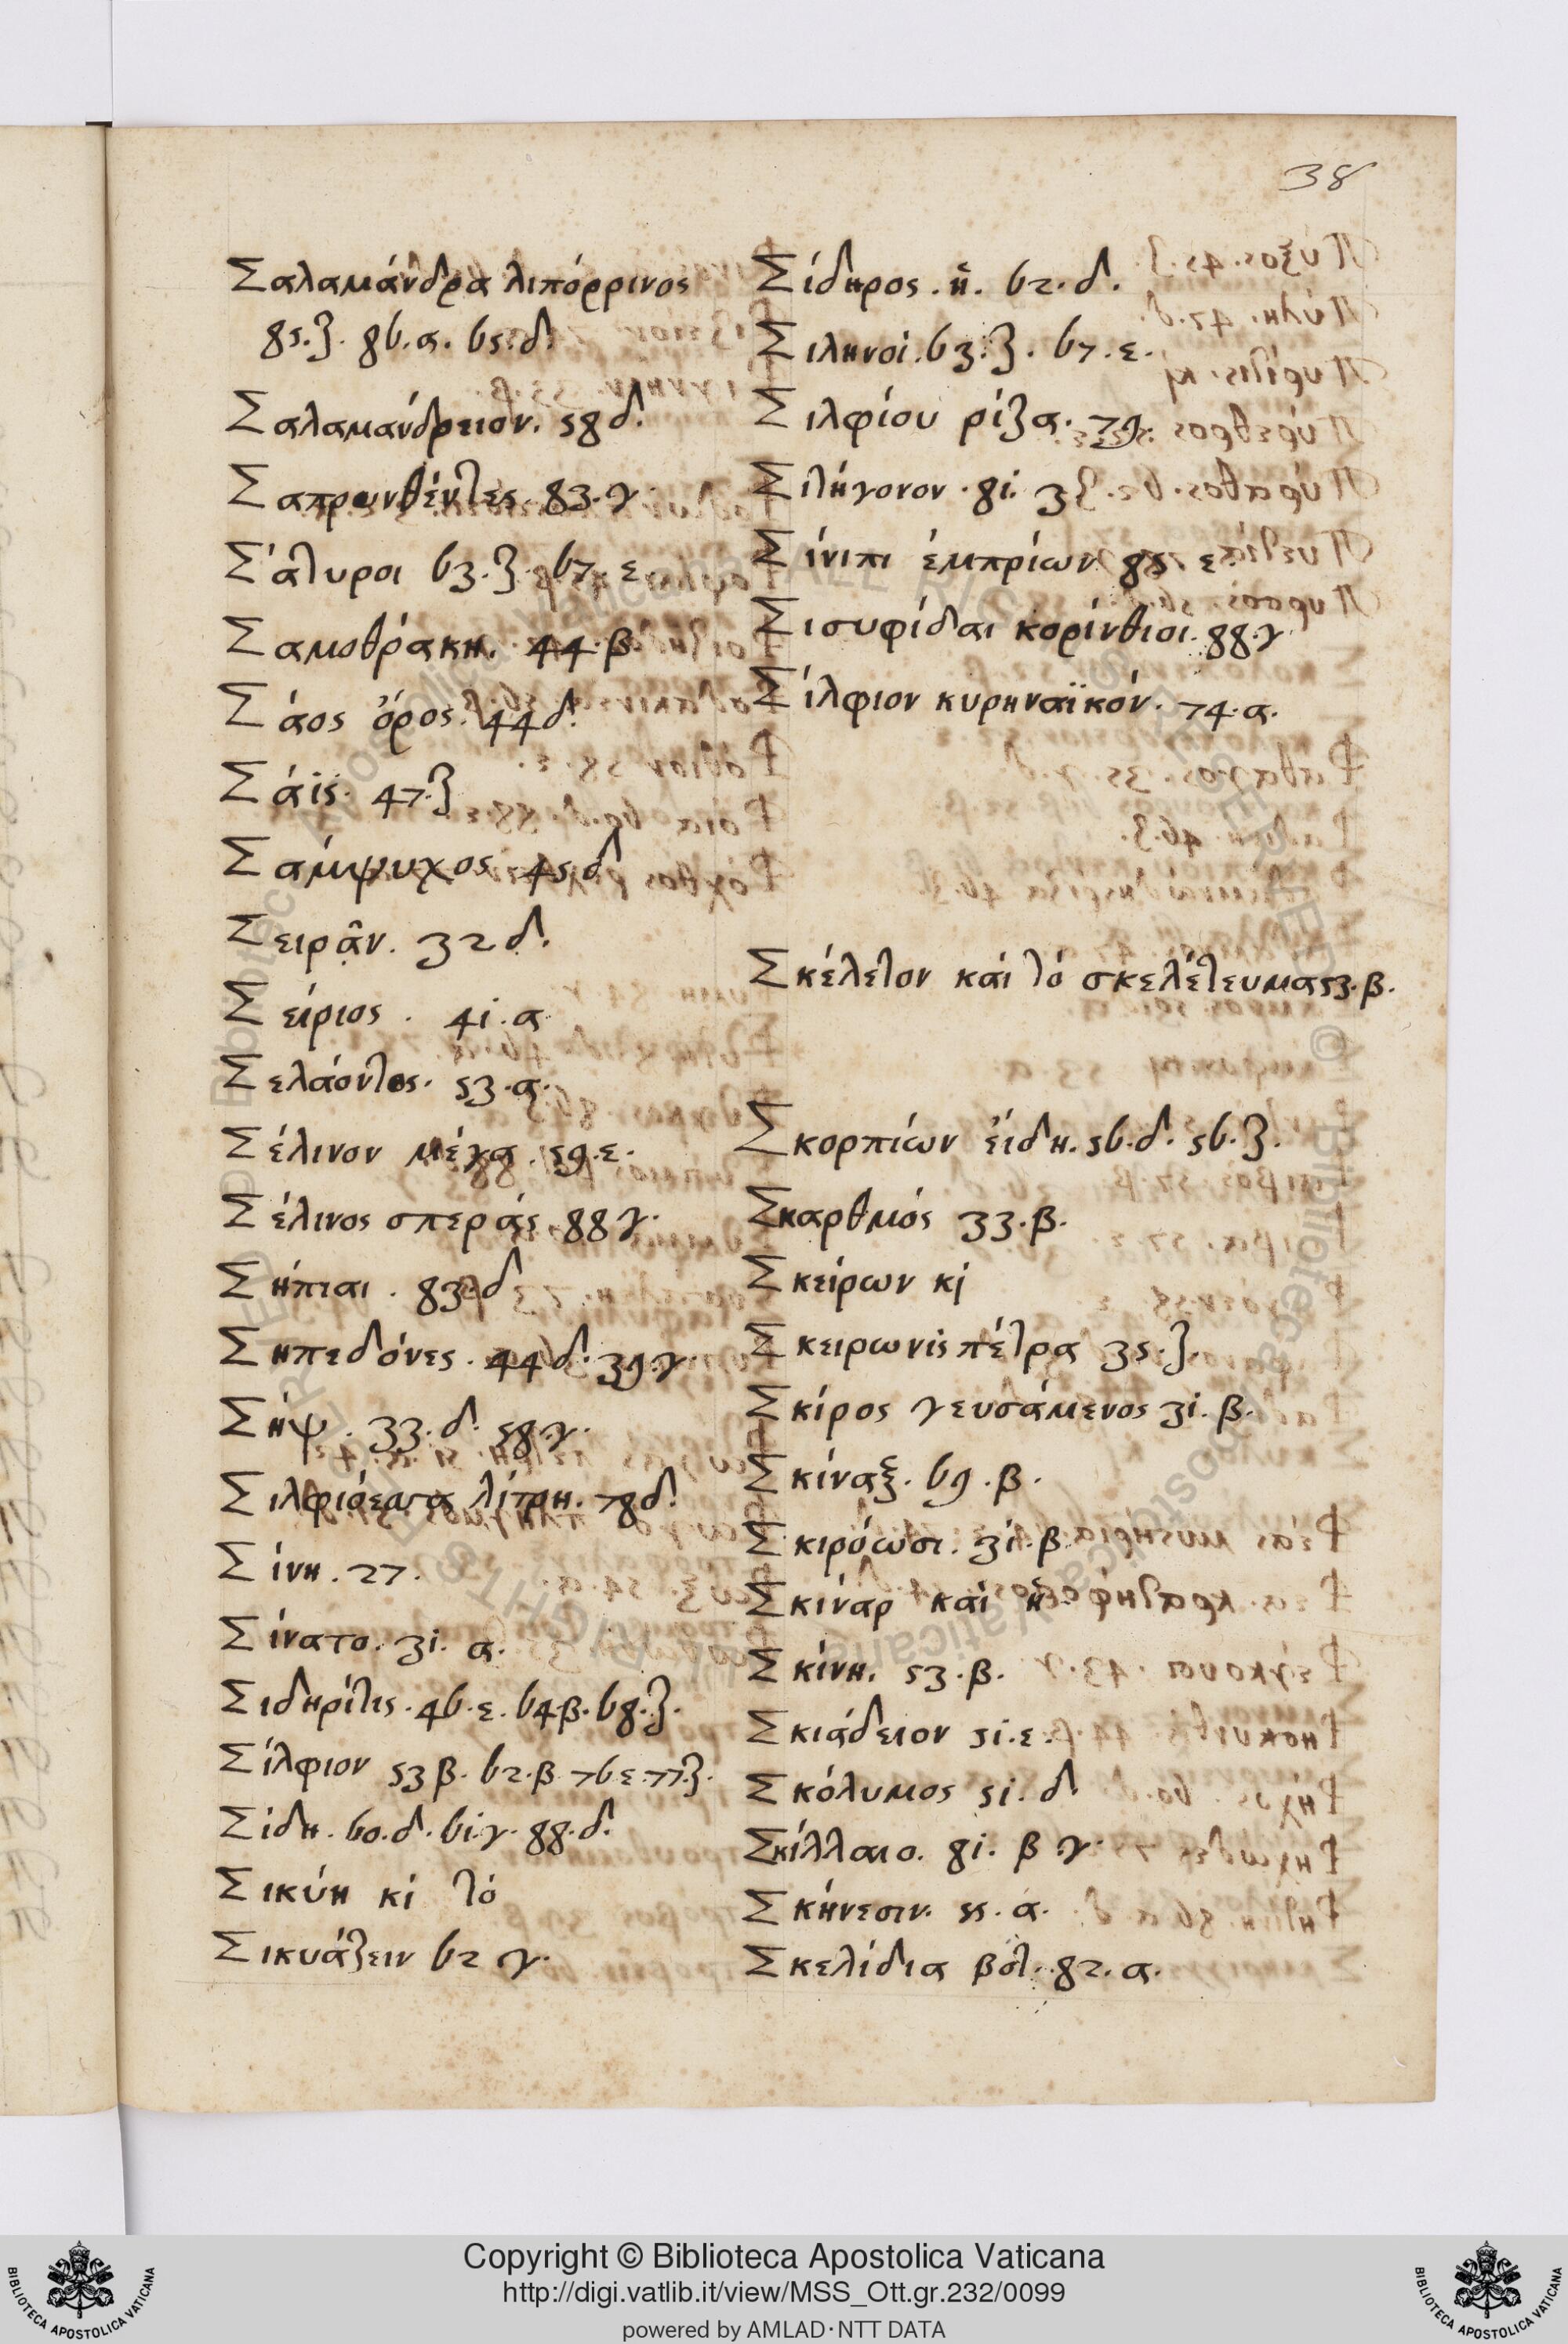 38
Σαλαμάνδρα λιπόρρινος
85.ζ. 86.α. 65.δ.
Σαλαμάνδρειον. 58 δ.
Σαπρωνθέντες. 83.γ.
Σάτυροι 63.ζ. 67.ε.
Σαμοθράκη. 44.β.
Σάος ὄρος. 44 δ.
Σάϊς. 47.ζ
Σάμψυχος. 45.δ
Σειρᾶν. 32 δ.
Σείριος. 41.α
Σελάοντος. 53.α.
Σέλινον μέγα. 59.ε.
Σέλινος σπεράς. 88 γ.
Σήπιαι. 83.δ
Σηπεδόνες. 44 δ. 39.γ.
Σήψ. 33.δ. 58.γ.
Σιλφιόεσσα λίτρη. 78 δ.
Σίνη. 27.
Σίνατο. 31. α.
Σιδηρίτις. 46.ε. 64β. 68.ζ.
Σίλφιον 53 β. 62.β 76 ε. 77.ζ.
Σίδη. 60.δ. 61.γ. 88.δ.
Σικύη κὶ τὸ
Σικυάζειν 62 γ.
Σίδηρος. ἢ. 62.δ.
Σιληνοί. 63.ζ. 67.ε.
Σιλφίου ρίζα. 79.
Σιτήγονον. 81. ζ
Σίνιπι ἐμπρίων 85. ε.
Σισυφίδαι κορίνθιοι. 88.γ
Σίλφιον κυρηναϊκόν. 74.α.
Σκέλετον καὶ τὸ σκελέτευμα 53.β.
Σκορπίων εἴδη. 56.δ. 56.ζ.
Σκαρθμός 33.β.
Σκείρων κὶ
Σκειρωνὶς πέτρα 35.ζ.
Σκίρος γευσάμενος 31.β.
Σκίναξ. 69.β.
Σκιρόωσι. 31.β
Σκίναρ καὶ ἡ
Σκίνη. 53.β.
Σκιάδειον 51.ε.
Σκόλυμος 51.δ
Σκίλλαιο. 81. β.γ.
Σκήνεσιν. 55.α.
Σκελίδια βοτ. 82.α.
Copyright © Biblioteca Apostolica Vaticana
http://digi.vatlib.it/view/MSS_Ott.gr.232/0099
powered by AMLAD·NTT DATA
BIBLIOTECA APOSTOLICA VATICANA
BIBLIOTECA APOSTOLICA VATICANA